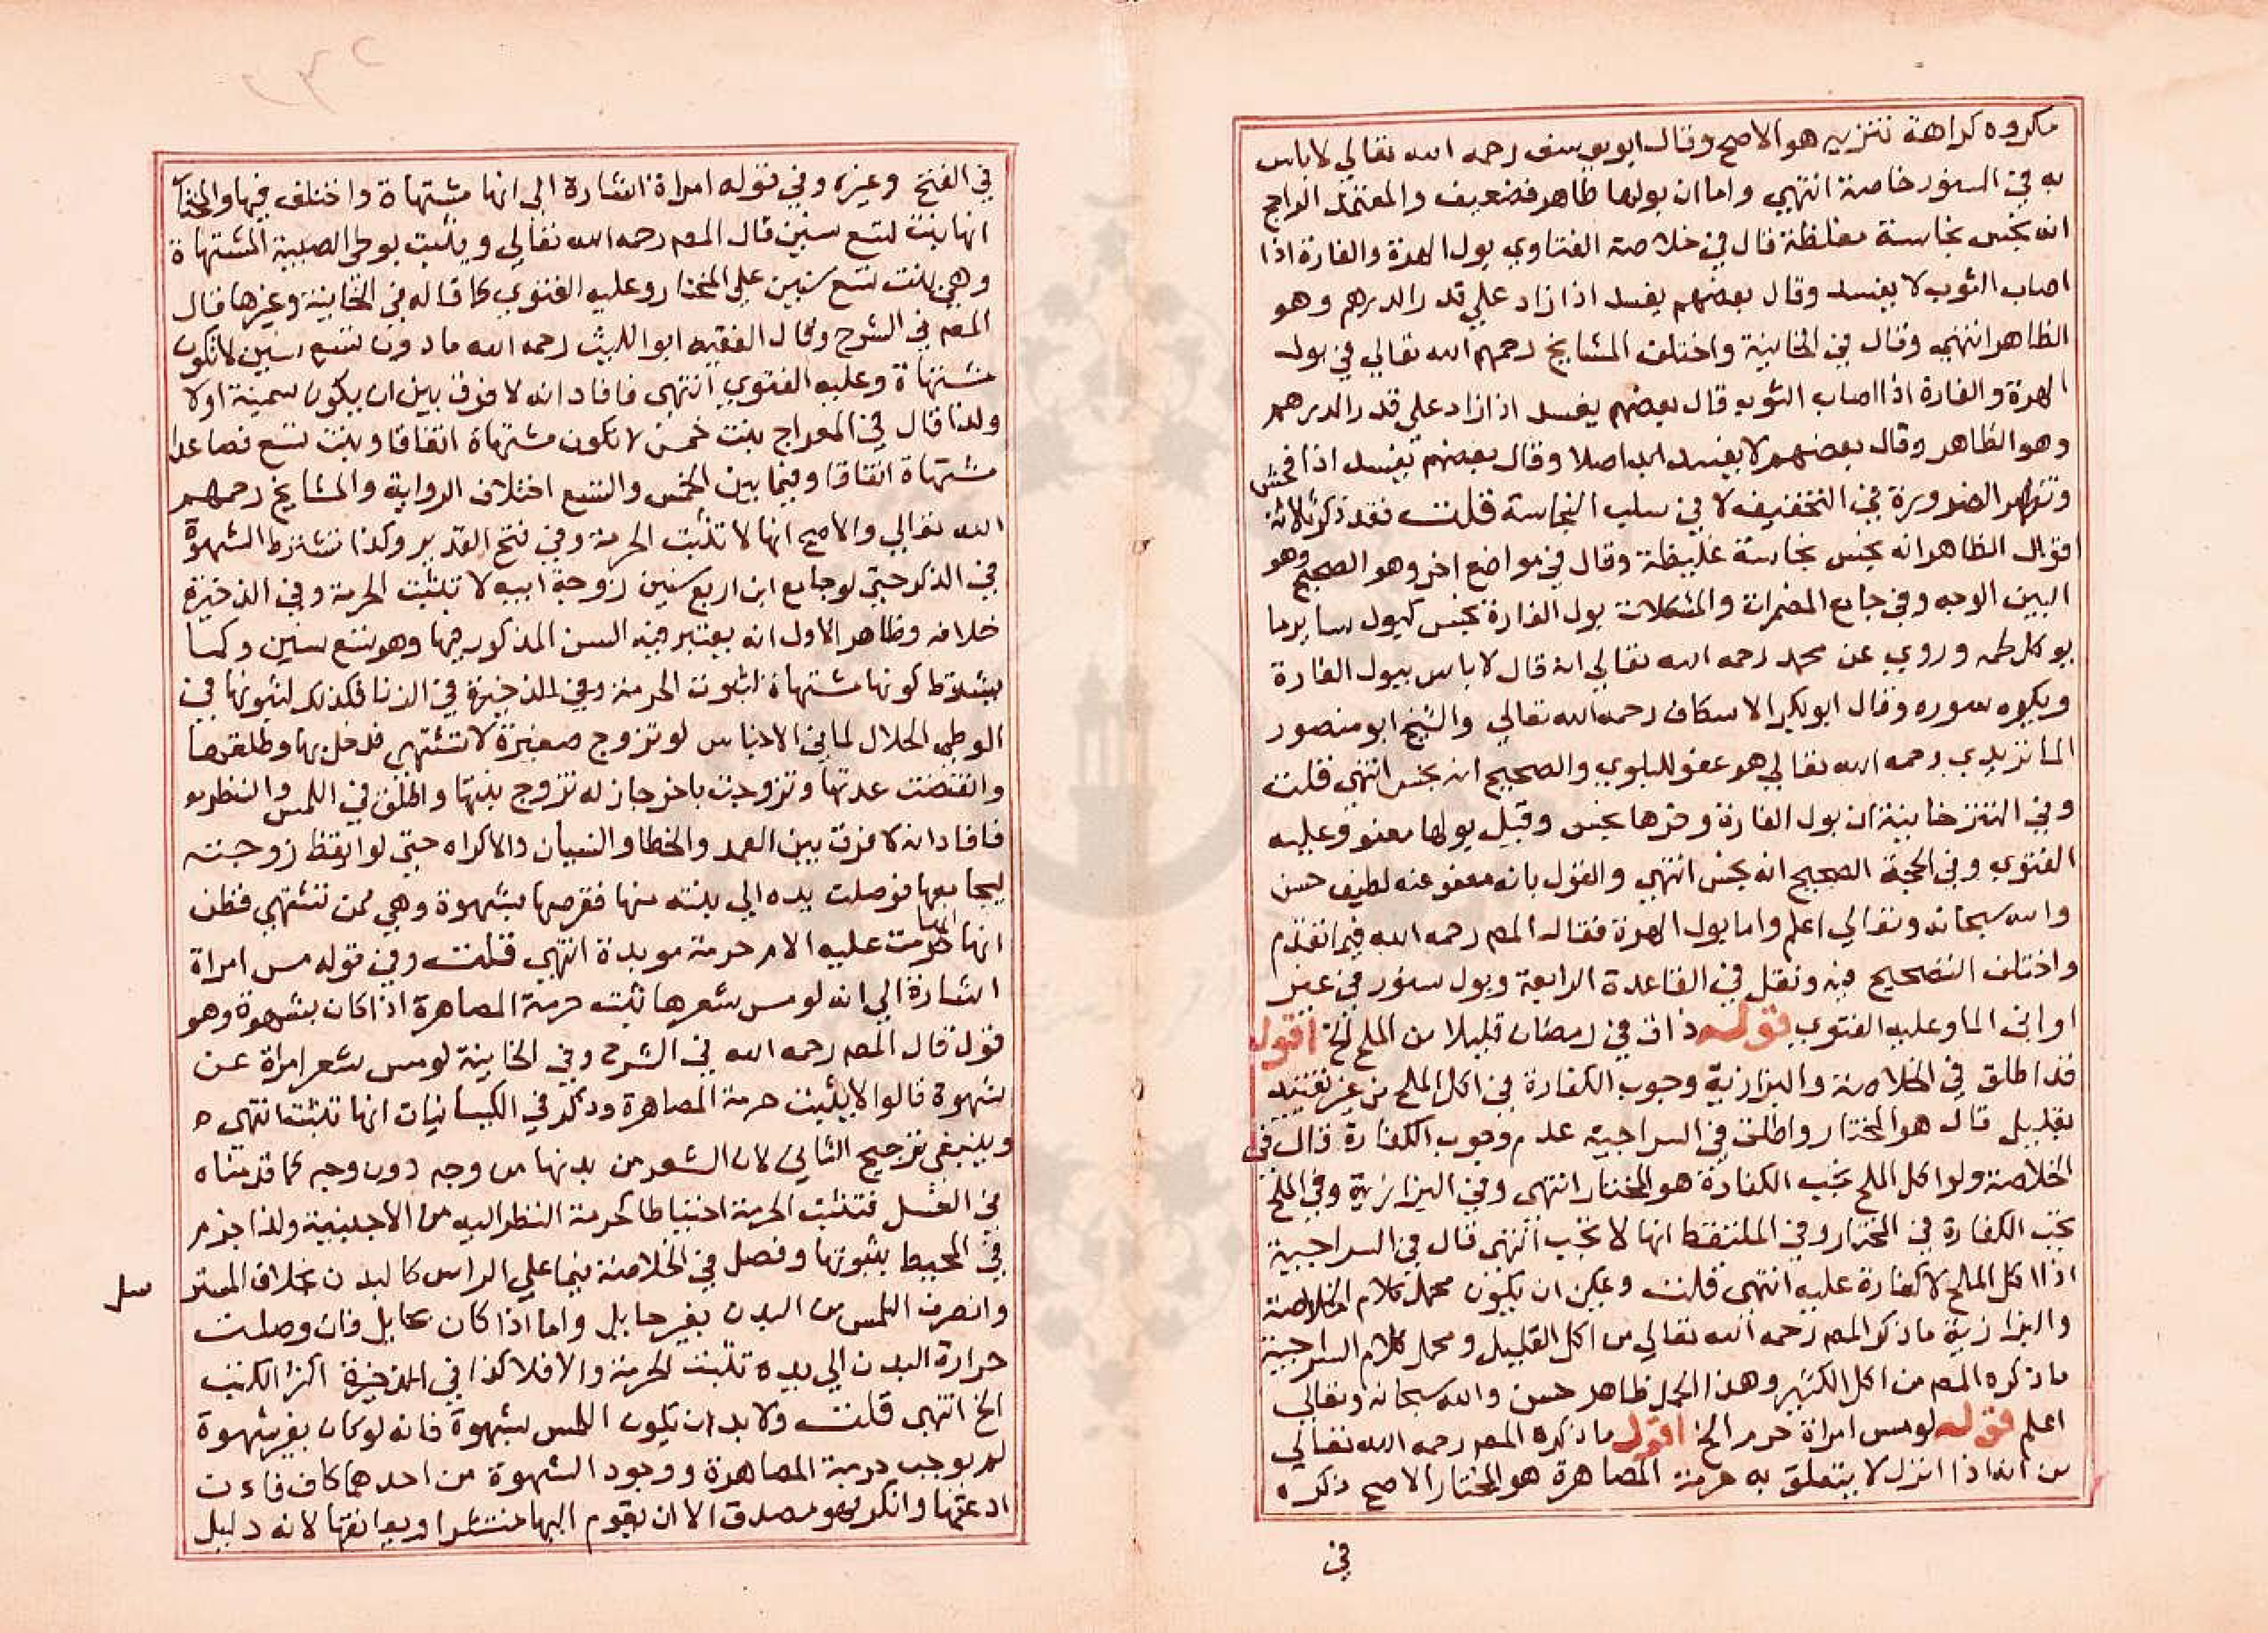 مكروه كراهة تنزيه هو الاصح وقال ابو يوسف رحمه الله تعالي لا باس
به في السؤر خاصة انتهي واما ان بولها طاهر فضعيف والمعتمد الراجح
انه نجس نجاسة مغلظة قال في خلاصة الفتاوي بول الهرة والفارة اذا
اصاب الثوب لا يفسد وقال بعضهم يفسد اذا زاد علي قدر الدرهم وهو
الظاهر انتهي وقال في الخانية واختلف المشايخ رحمهم الله تعالي في بول
الهرة والفارة اذا اصاب الثوب قال بعضهم يفسد اذا زاد علي قدر الدرهم
وهو الظاهر وقال بعضهم لا يفسد اصلا وقال بعضهم يفسد اذا فحش
وتظهر الضرورة في التخفيف لا في سلب النجاسة قلت فقد ذكر ثلاثة
اقوال الظاهر انه نجس نجاسة غليظة وقال في مواضع اخر وهو الصحيح وهو
البين الوجه وفي جامع المضمرات والمشكلات بول الفارة نجس كبول ساير ما
يوكل لحمه وروي عن محمد رحمه الله تعالي انه قال لا باس ببول الفارة
ويكره سوره وقال ابو بكر الاسكاف رحمه الله تعالي والشيخ ابو منصور
الماتريدي رحمه الله تعالي هو عفو للبلوي والصحيح انه نجس انتهي قلت
وفي التترخانية ان بول الفارة وخرها نجس وقيل بولها معفو وعليه
الفتوي وفي الحجة الصحيح انه نجس انتهي والقول بانه معفو عنه لطيف حسن
والله سبحانه وتعالي اعلم واما بول الهرة فقال المص رحمه الله فيما تقدم
واختلف التصحيح فيه ونقل في القاعدة الرابعة وبول سنور في غير
اواني الما وعليه الفتوي قوله ذاق في رمضان قليلا من الملح الخ اقول
قد اطلق في الخلاصة والبزازية وجوب الكفارة في اكل الملح من غير تقييد
بقليل قال هو المختار واطلق في السراجية عدم وجوب الكفارة قال في
الخلاصة ولو اكل الملح تجب الكفارة هو المختار انتهي وفي البزازية وفي الملح
تجب الكفارة في المختار وفي الملتقط انها لا تجب انتهي قال في السراجية
اذا اكل الملح لا كفارة عليه انتهي قلت ويمكن ان يكون محمل كلام الخلاصة
والبزازية ما ذكر المص رحمه الله تعالي من اكل القليل ومحمل كلام السراجية
ما ذكره المص من اكل الكثير وهذا الحمل ظاهر حسن والله سبحانه وتعالي
اعلم قوله لو مس امراة حرم الخ اقول ما ذكره المص رحمه الله تعالي
من انه اذا انزل لا يتعلق به حرمة المصاهرة هو المختار الاصح ذكره
في
في الفتح وغيره وفي قوله امراة اشارة الي انها مشتهاة واختلف فيها والمختار
انها بنت تسع سنين قال المص رحمه الله تعالي ويثبت بوطئ الصبية المشتهاة
وهي بنت تسع سنين علي المختار وعليه الفتوي كما قاله في الخانية وغيرها قال
المص في الشرح وقال الفقيه ابو الليث رحمه الله ما دون تسع سنين لا تكون
مشتهاة وعليه الفتوي انتهي فافاد انه لا فرق بين ان يكون سمينة اولا
ولذا قال في المعراج بنت خمس لا تكون مشتهاة اتفاقا وبنت تسع فصاعدا
مشتهاة اتفاقا وفيما بين الخمس والتسع اختلاف الرواية والمشايخ رحمهم
الله تعالي والاصح انها لا تثبت الحرمة وفي فتح القدير وكذا تشترط الشهوة
في الذكر حتي لو جامع ابن اربع سنين زوجة ابيه لا تثبت الحرمة وفي الذخيرة
خلافه وظاهر الاول انه يعتبر فيه السن المذكور فيها وهو تسع سنين وكما
يشترط كونها مشتهاة لثبوت الحرمة وفي الذخيرة في الزنا فكذلك لثبوتها في
الوطي الحلال لما في الاجناس لو تزوج صغيرة لا تشتهي فدخل بها وطلقها
وانقضت عدتها وتزوجت باخر جاز له تزوج بنتها واطلق في اللمس والنظر
فافاد انه لا فرق بين العمد والخطا والنسيان والاكراه حتي لو ايقظ زوجته
ليجامعها فوصلت يده الي بنته منها فقرصها بشهوة وهي ممن تشتهي فظن
انها امها حرمت عليه الام حرمة موبدة انتهي قلت وفي قوله مس امراة
اشارة الي انه لو مس شعرها ثبت حرمة المصاهرة اذا كان بشهوة وهو
قول قال المص رحمه الله في الشرح وفي الخانية لو مس شعر امراة عن
شهوة قالوا لا يثبت حرمة المصاهرة وذكر في الكيسانيات انها تثبت انتهي ه
وينبغي ترجيح الثاني لان الشعر من بدنها من وجه دون وجه كما قدمناه
في الغسل فتثبت الحرمة احتياطا كحرمة النظر اليه من الاجنبية ولذا جزم
في المحيط بثبوتها وفصل في الخلاصة فيما علي الراس كالبدن بخلاف المستر
سل
وانصرف اللمس من البدن بغير حايل واما اذا كان بحايل فان وصلت
حرارة البدن الي يده تثبت الحرمة والا فلا كذا في الذخيرة اكثر الكتب
الخ انتهي قلت ولا بد ان يكون اللمس بشهوة فانه لو كان بغير شهوة
لم يوجب حرمة المصاهرة ووجود الشهوة من احدهما كاف فان
ادعتها وانكر فهو مصدق الا ان يقوم اليها منتشرا ويعانقها لانه دليل